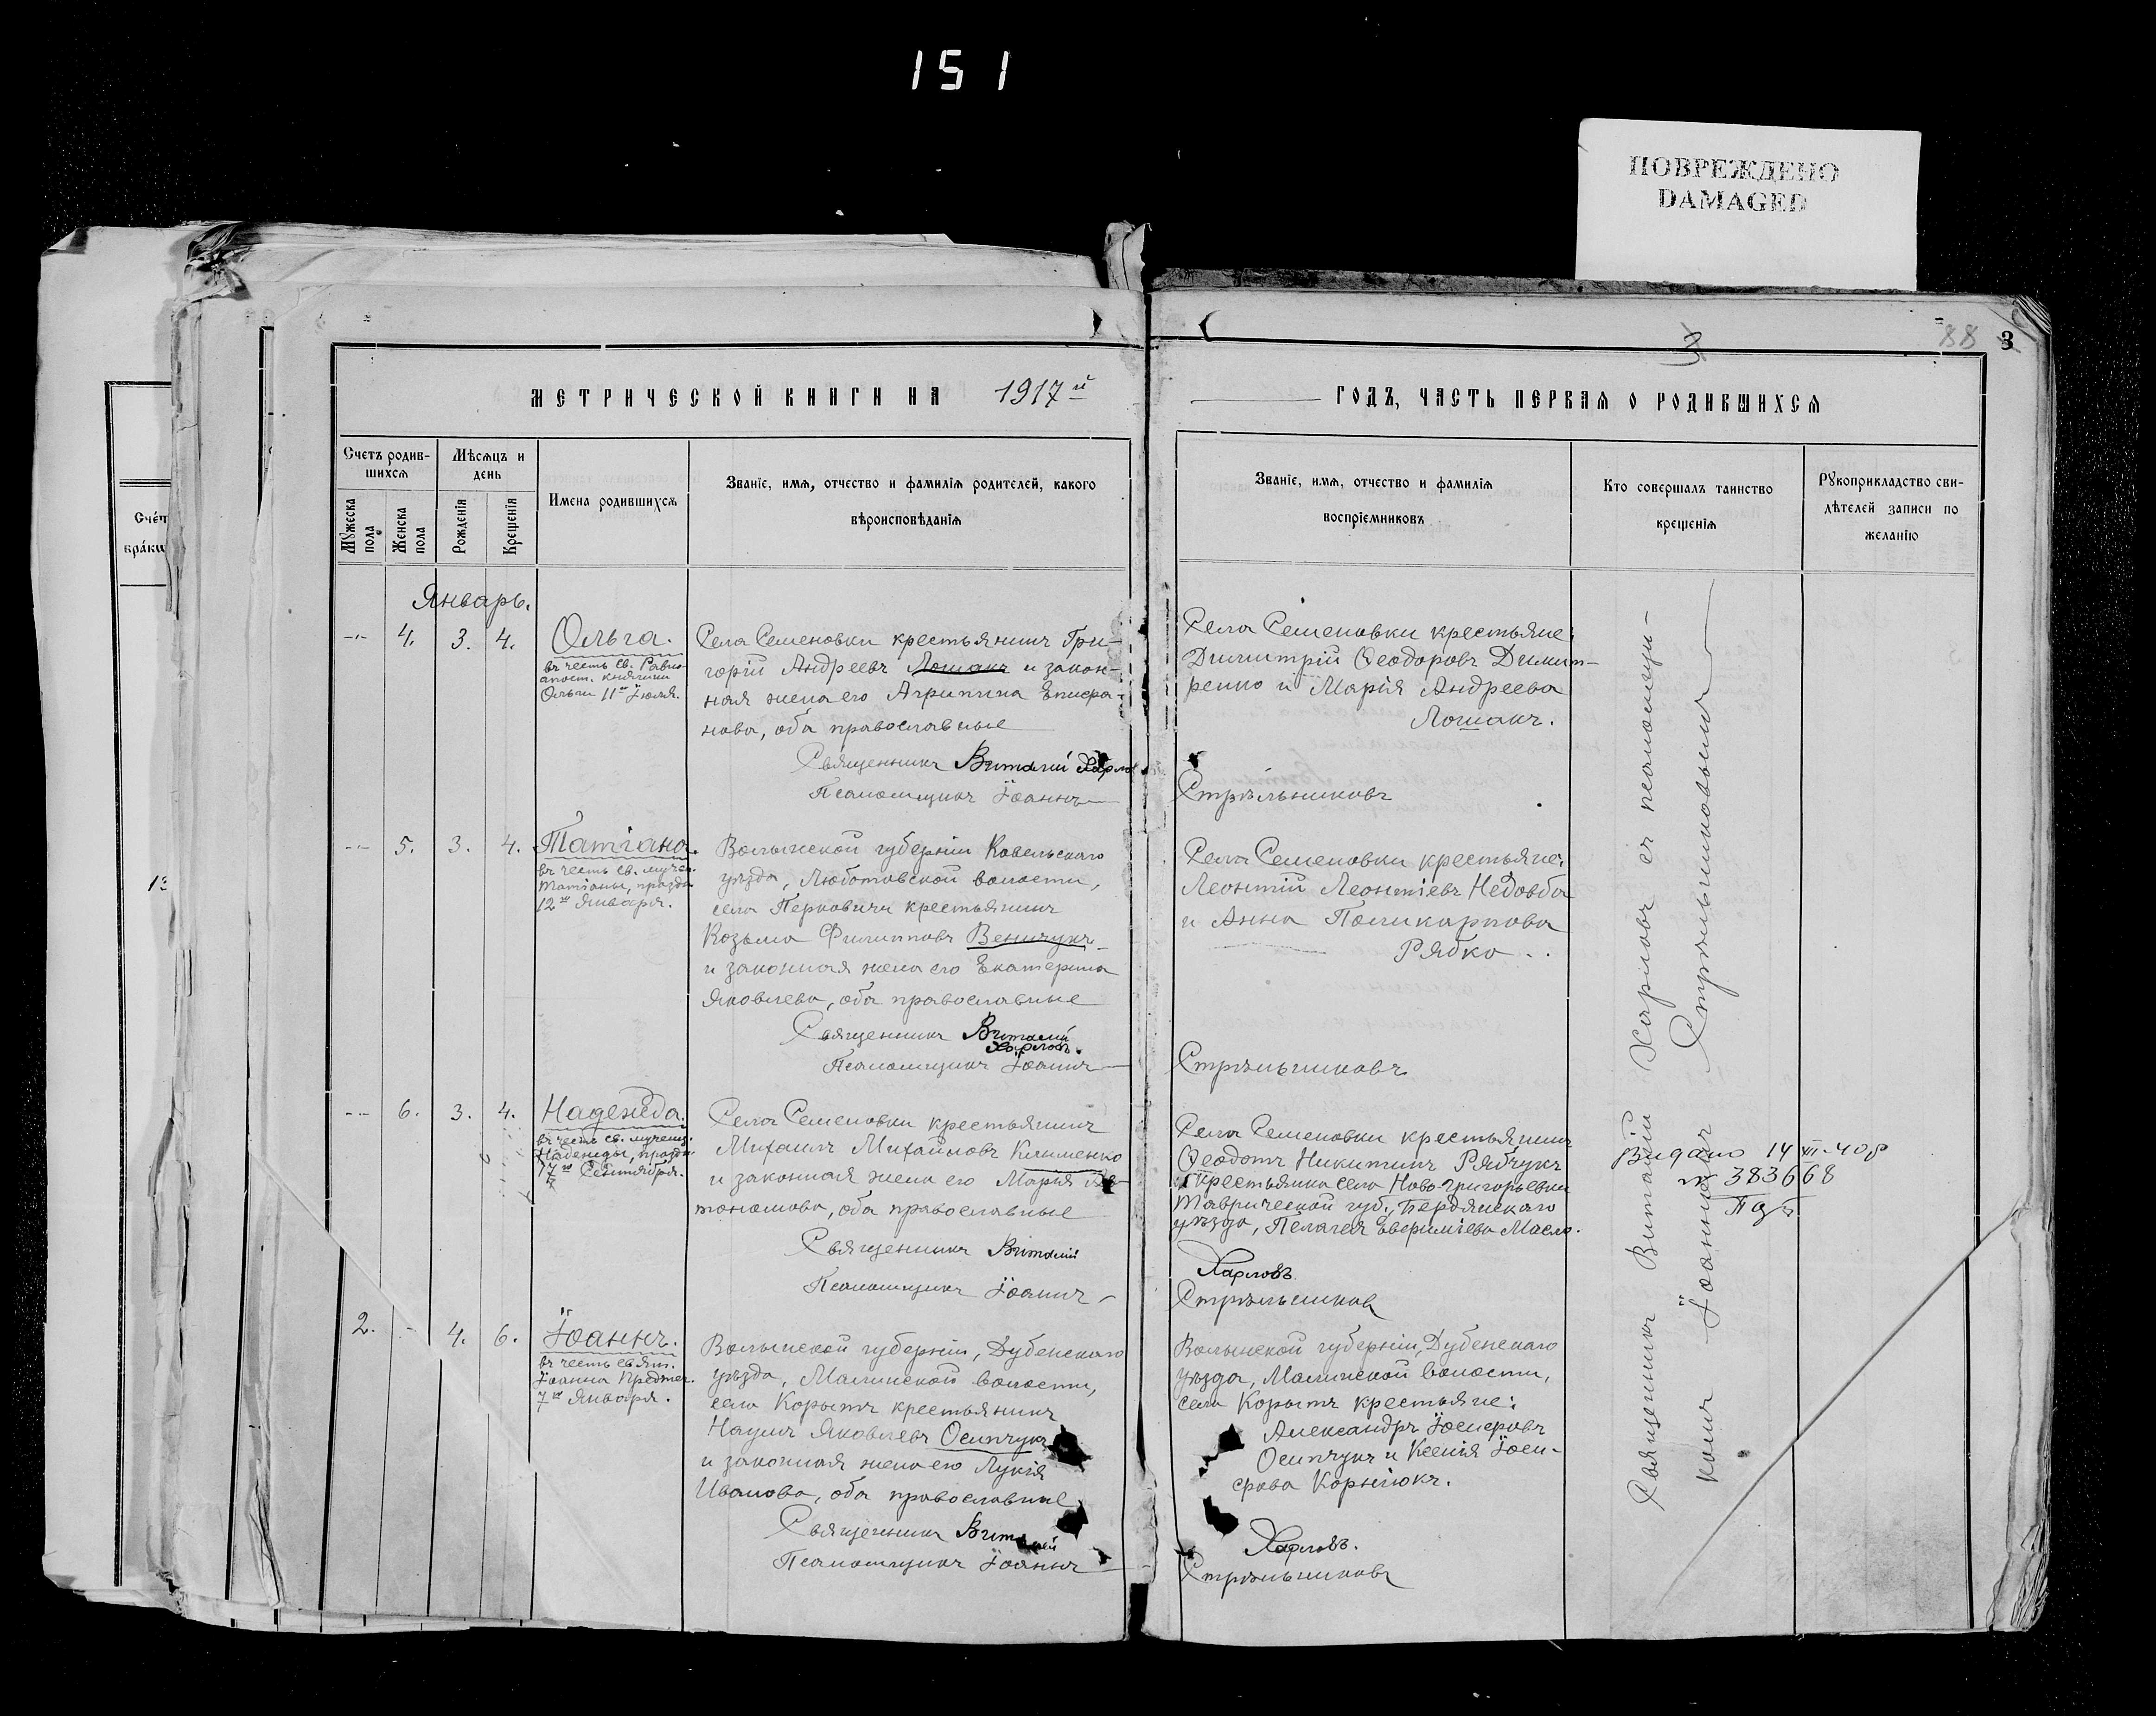 151
ПОВРЕЖДЕНО
DAMAGED
88 3
3
МЕТРИЧЕСКОЙ КНИГИ НА 1917й
ГОДЪ, ЧАСТЬ ПЕРВАЯ О РОДИВШИХСЯ
Счетъ родив-
шихся
Мужеска пола
Женска пола
Мѣсяцъ и
день
Рожденія
Крещенія
Имена родившихся
Званіе, имя, отчество и фамилія родителей, какого
вѣроисповѣданія
Званіе, имя, отчество и фамилія
воспріемниковъ
Кто совершалъ таинство
крещенія
Рукоприкладство сви-
дѣтелей записи по
желанію
Счет
брако
13
Январь.
-- 4. 3. 4.
Ольга.
въ честь св. Равно-
апост. княгини
Ольги 11го Іюля.
Села Семеновки крестьянинъ Гри-
горій Андреевъ Лошакъ и закон-
ная жена его Агрипина Епифа-
нова, оба православные
Священникъ Виталій Харлов
Псаломщикъ Іоаннъ
Села Семеновки крестьяне:
Димитрій Ѳеодоровъ Димит-
ренко и Марія Андреева
Лошакъ.
Стрѣльниковъ
-- 5. 3. 4.
Татіана.
въ честь св. мучен.
Татіаны, праздн.
12го Января.
Волынской губерніи Ковельскаго
уѣзда, Любитовской волости,
села Перковичи крестьянинъ
Козьма Филипповъ Веничукъ
и законная жена его Екатерина
Яковлева, оба православные
Священникъ Виталій
Харловъ.
Псаломщикъ Іоаннъ
Села Семеновки крестьяне:
Леонтій Леонтіевъ Недовба
и Анна Поликарпова
Рябко.
Стрѣльниковъ
-- 6. 3. 4.
Надежда.
въ честь св. мучениц.
Надежды, праздн.
17го Сентября.
Села Семеновки крестьянинъ
Михаилъ Михайловъ Клименко
и законная жена его Марія Ав-
тономова, оба православные
Священникъ Виталій
Псаломщикъ Іоаннъ
Села Семеновки крестьянинъ
Ѳеодотъ Никитинъ Рябчукъ
и крестьянка села Ново-Григорьевки
Таврической губ., Бердянскаго
уѣзда, Пелагея Евфиміева Масло.
Харловъ
Стрѣльников
2. - 4. 6.
Іоаннъ.
въ честь свят.
Іоанна Предтеч.
7го Января.
Волынской губерніи, Дубенскаго
уѣзда, Малинской волости,
села Корытъ крестьянинъ
Наумъ Яковлевъ Осипчукъ
и законная жена его Лукія
Иванова, оба православные
Священникъ Виталій
Псаломщикъ Іоаннъ
Волынской губерніи, Дубенскаго
уѣзда, Малинской волости,
села Корытъ крестьяне:
Александръ Іосифовъ
Осипчукъ и Ксенія Іоси-
фова Корнілюкъ.
Харловъ.
Стрѣльниковъ
Священникъ Виталій Харловъ съ псаломщи-
комъ Іоанномъ Стрѣльниковымъ
Видано 14 III-40 р
№ 383668